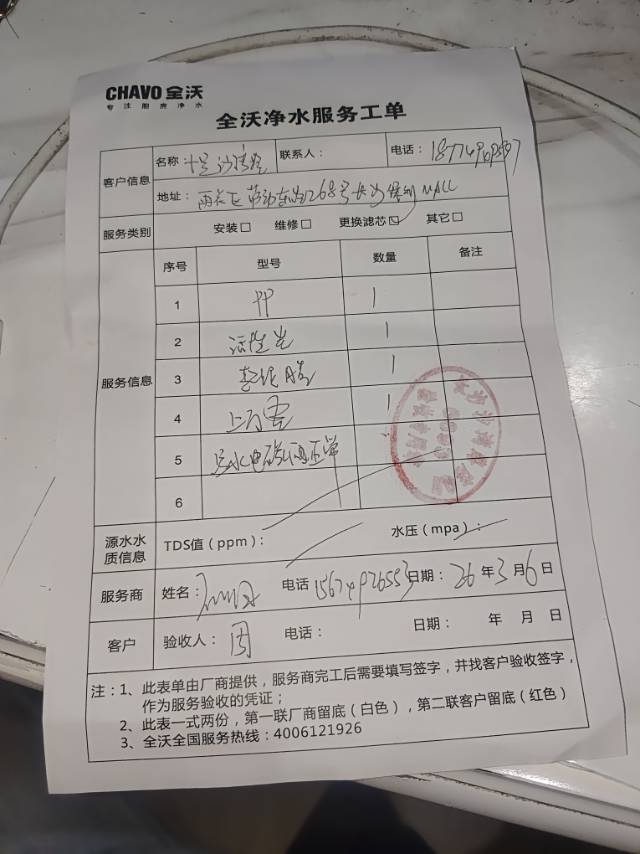 CHAVO 全沃
专注厨房净水
全沃净水服务工单
客户信息
名称：
联系人：
电话：
地址：雨花区劳动东路268号长沙保利MALL
服务类别
安装□ 维修□ 更换滤芯☑ 其它□
服务信息
序号 型号 数量 备注
1 PP 1
2 活性炭 1
3 1
4 1
5
6
源水水质信息
TDS值（ppm）： 水压（mpa）：
服务商
姓名： 电话 15674926553 日期：26年3月6日
客户
验收人：周 电话： 日期： 年 月 日
注：1、此表单由厂商提供，服务商完工后需要填写签字，并找客户验收签字，
作为服务验收的凭证；
2、此表一式两份，第一联厂商留底（白色），第二联客户留底（红色）
3、全沃全国服务热线：4006121926